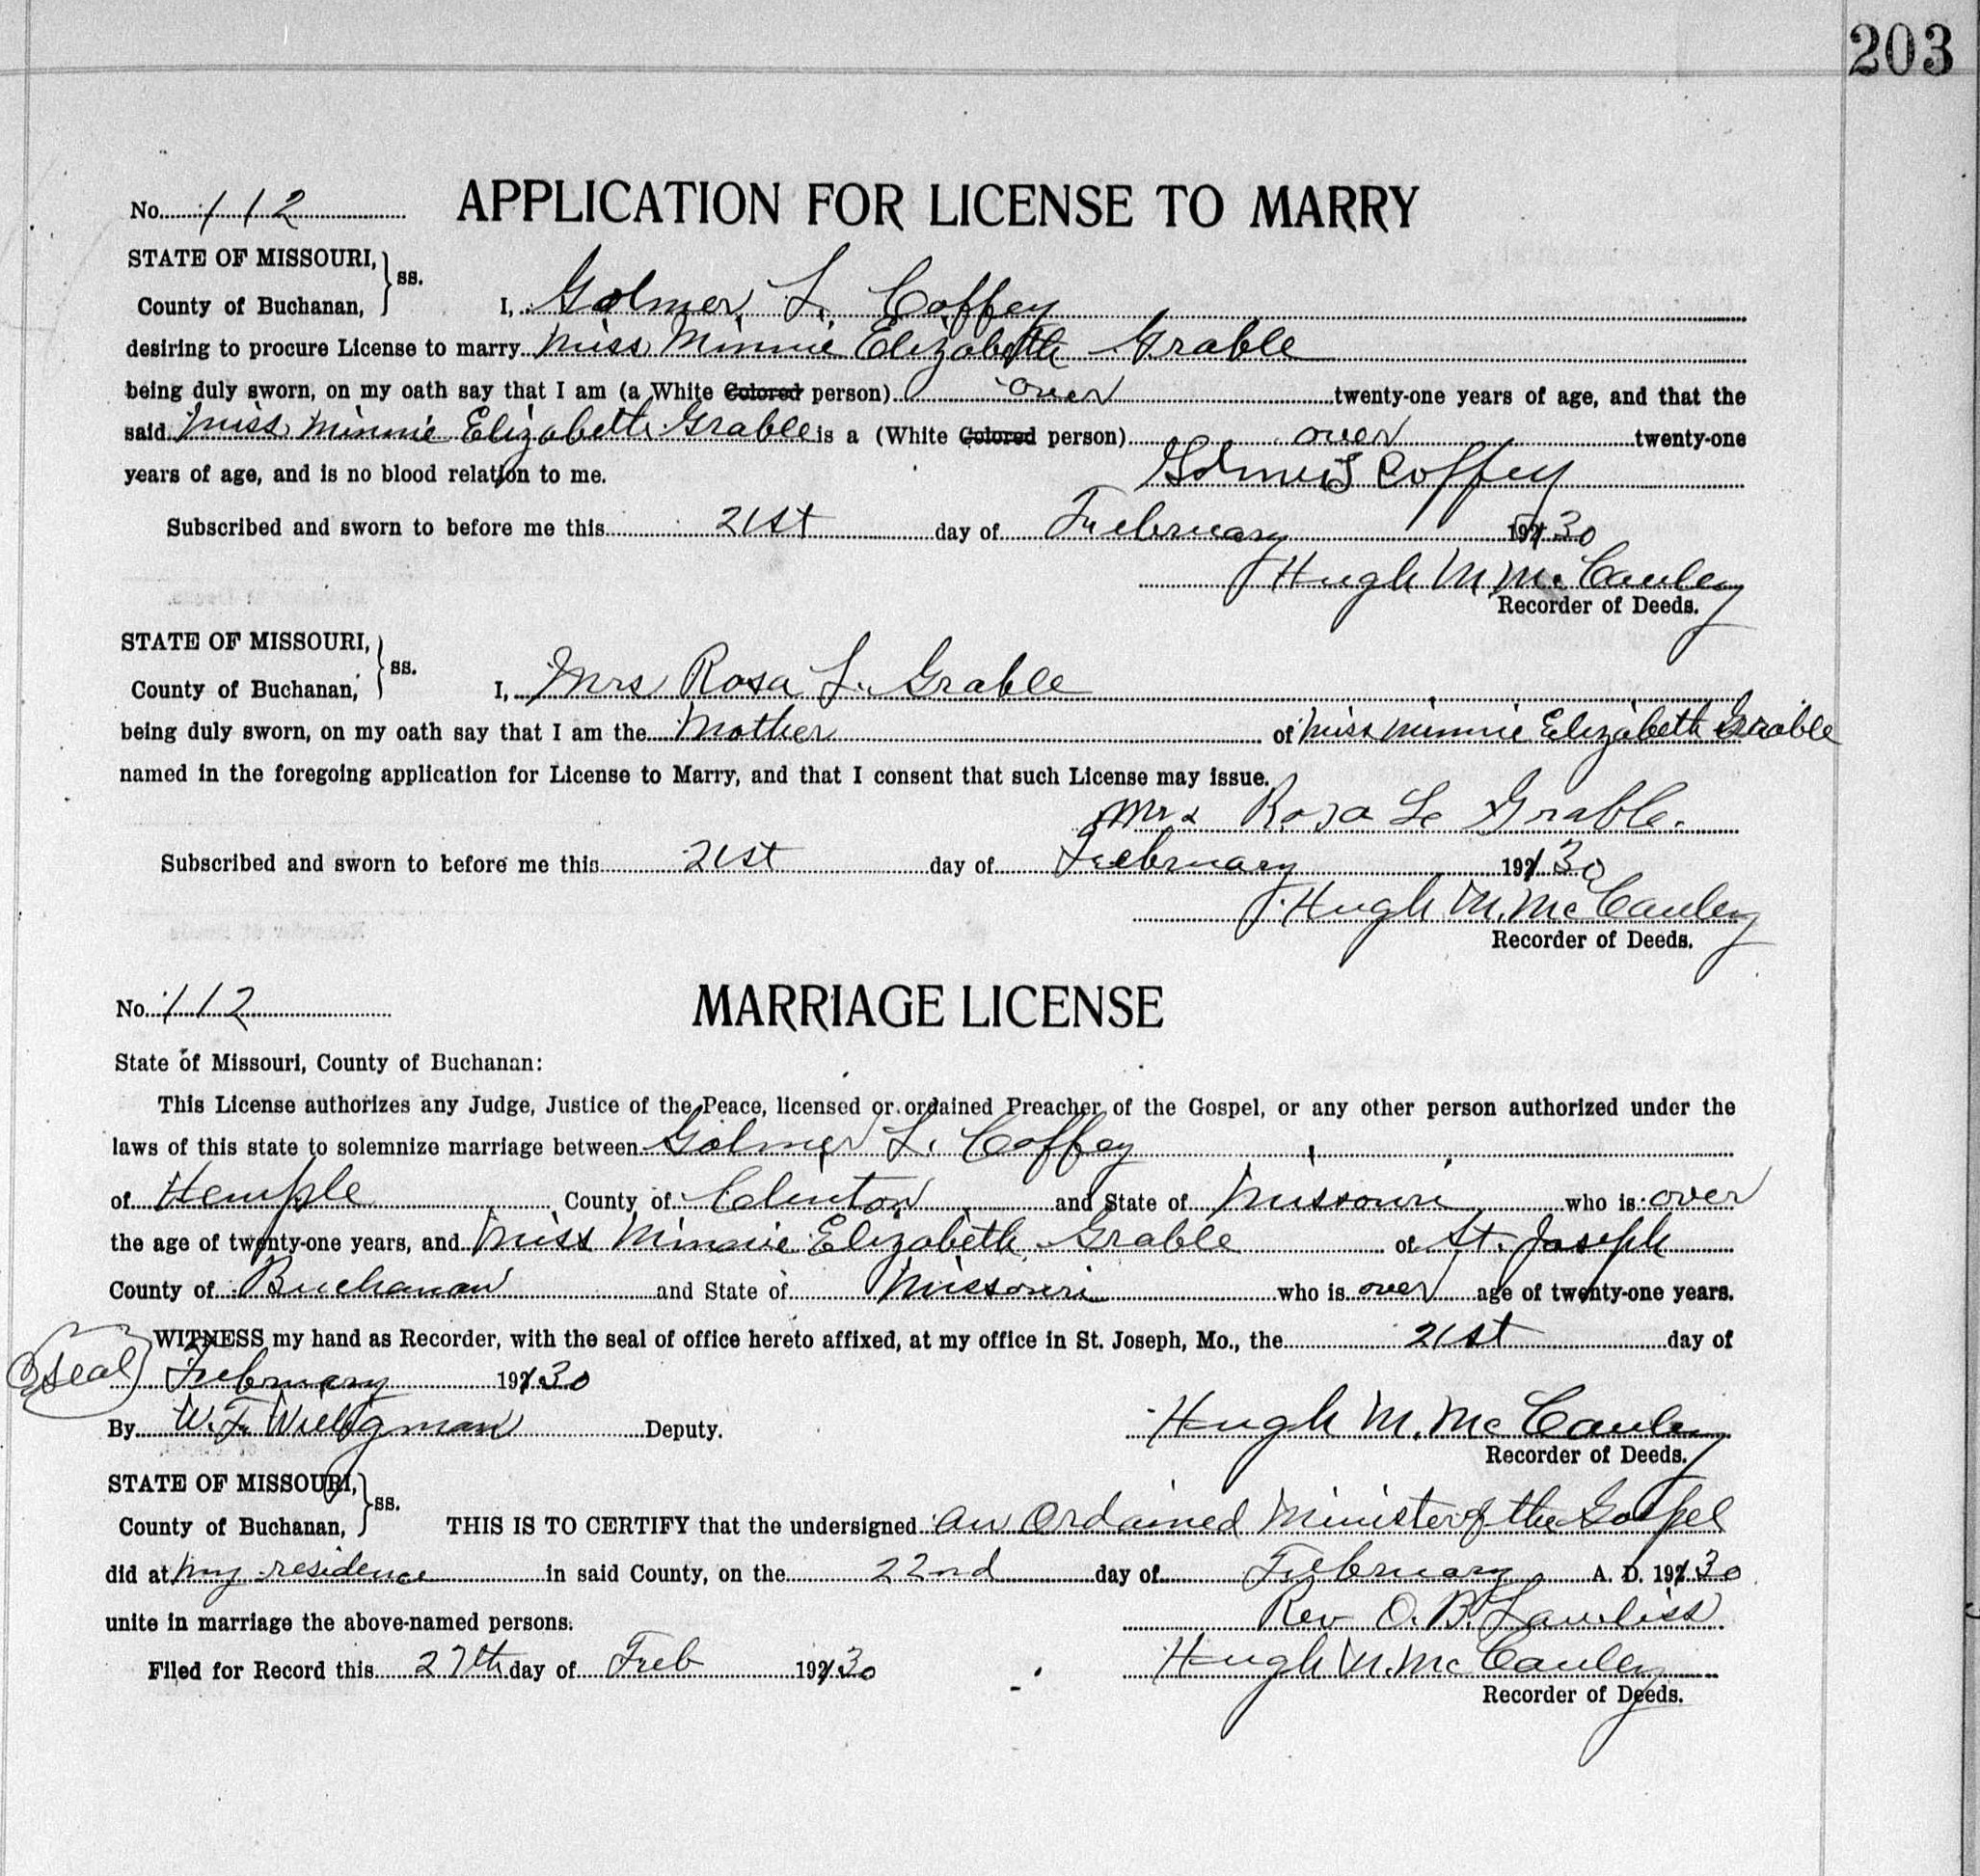 203
No. 112 APPLICATION FOR LICENSE TO MARRY
STATE OF MISSOURI, } ss.
County of Buchanan, I, Golmer L. Coffey
desiring to procure License to marry Miss Minnie Elizabeth Grable
being duly sworn, on my oath say that I am (a White Colored person) over twenty-one years of age, and that the
said Miss Minnie Elizabeth Grable is a (White Colored person) over twenty-one
years of age, and is no blood relation to me. Golmer L Coffey
Subscribed and sworn to before me this 21st day of February 1930
Hugh M. McCauley
Recorder of Deeds.
STATE OF MISSOURI, } ss.
County of Buchanan, I, Mrs Rosa L. Grable
being duly sworn, on my oath say that I am the Mother of Miss Minnie Elizabeth Grable
named in the foregoing application for License to Marry, and that I consent that such License may issue.
Mrs Rosa L Grable.
Subscribed and sworn to before me this 21st day of February 1930
Hugh M. McCauley
Recorder of Deeds.
No. 112 MARRIAGE LICENSE
State of Missouri, County of Buchanan:
This License authorizes any Judge, Justice of the Peace, licensed or ordained Preacher of the Gospel, or any other person authorized under the
laws of this state to solemnize marriage between Golmer L. Coffey
of Hemple County of Clinton and State of Missouri who is over
the age of twenty-one years, and Miss Minnie Elizabeth Grable of St. Joseph
County of Buchanan and State of Missouri who is over age of twenty-one years.
WITNESS my hand as Recorder, with the seal of office hereto affixed, at my office in St. Joseph, Mo., the 21st day of
Seal February 1930
By W. F. Deputy. Hugh M. McCauley
Recorder of Deeds.
STATE OF MISSOURI, } ss.
County of Buchanan, THIS IS TO CERTIFY that the undersigned an Ordained Minister of the Gospel
did at my residence in said County, on the 22nd day of February A. D. 1930
unite in marriage the above-named persons. Rev O. B. Lawliss
Filed for Record this 27th day of Feb 1930 Hugh M. McCauley
Recorder of Deeds.